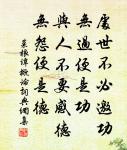 處世不必邀功
無過便是功
與人不要感德
無怨便是德
菜根譚 詞典網集